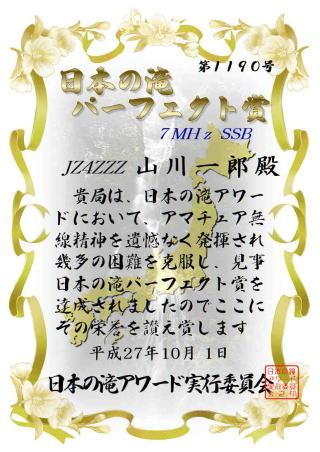 第1190号
日本の滝
パーフェクト賞
7MHz SSB
JZAZZZ 山川一郎殿
貴局は、日本の滝アワー
ドにおいて、アマチュア無
線精神を遺憾なく発揮され
幾多の困難を克服し、見事
日本の滝パーフェクト賞を
達成されましたのでここに
その栄誉を讃え賞します
平成27年10月 1日
日本の滝アワード実行委員会